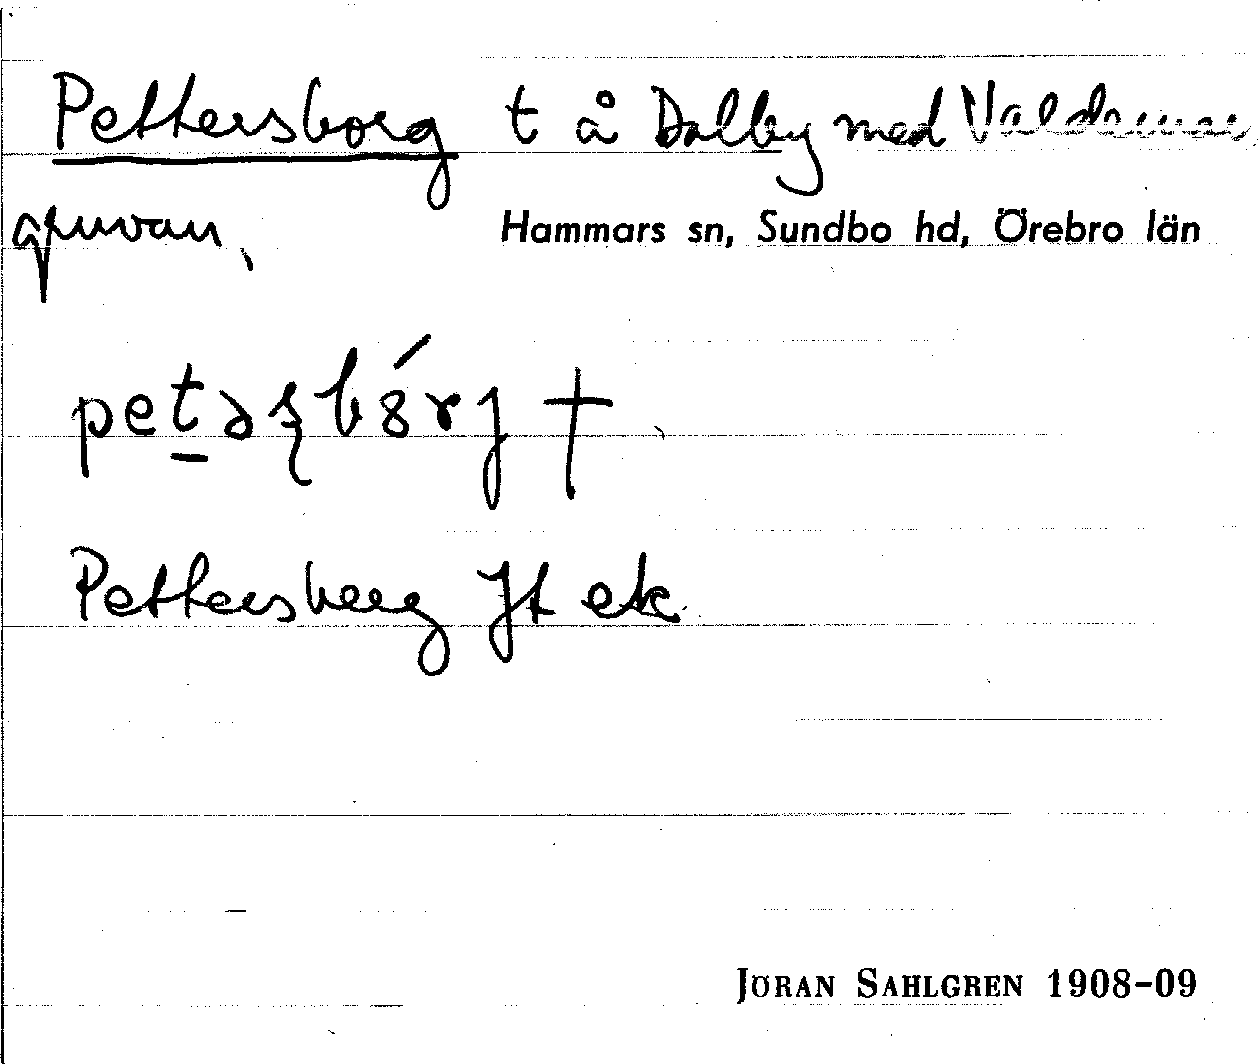 Pettersborg t å Dalby med Valdemar
gruvan,
Hammars sn, Sundbo hd, Örebro län
Pettersberg Jt ek
JÖRAN SAHLGREN 1908-09